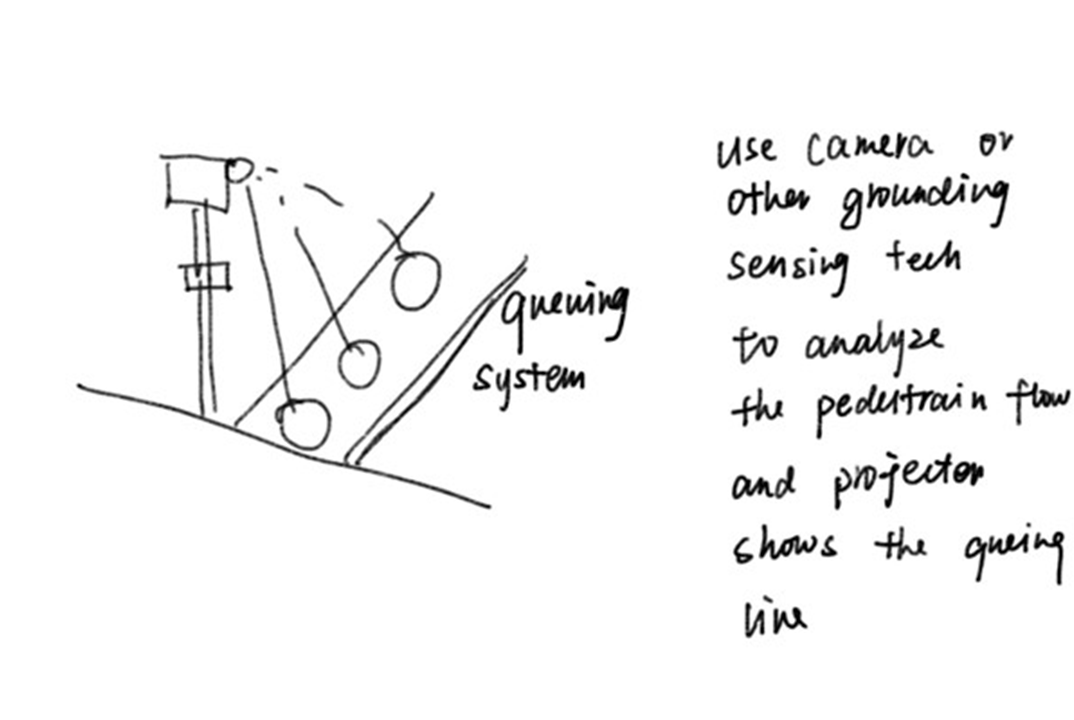 queuing
system
use camera or
other grounding
sensing tech
to analyze
the pedestrain flow
and projector
shows the queing
line